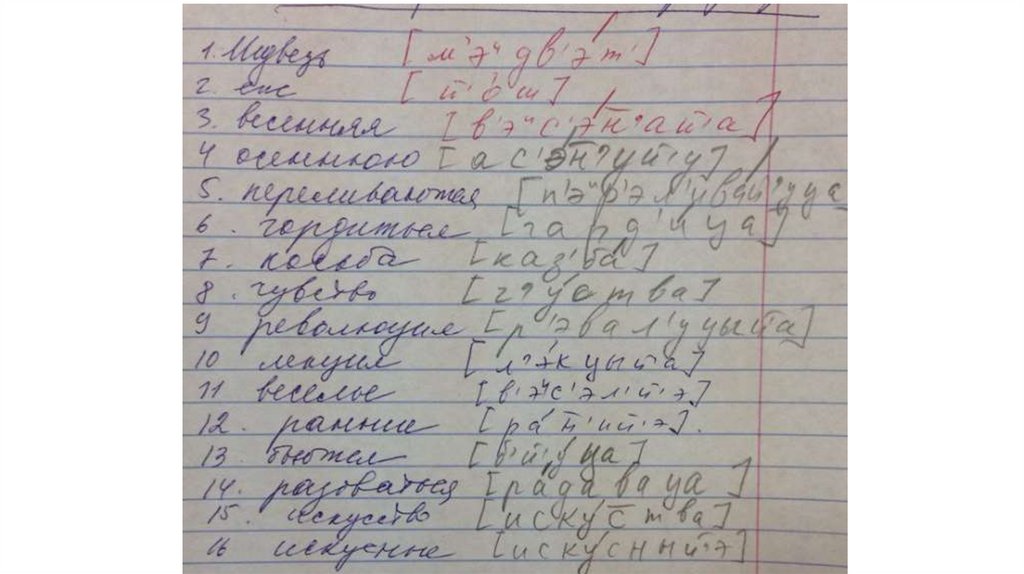 1. Медведь [м'э"дв'эт']
2. ёж [й'ош]
3. весенняя [в'э"с'эн'ай'а]
4 осеннюю [ас'эн'уй'у]
5. переливаются [п'э"р'эл'ивай'уца
6. гордиться [гард'ица]
7. косьба [каз'ба]
8. чувство [ч'уства]
9 революция [р'эвал'уцыйа]
10 лекция [л'экцыйа]
11 веселье [в'э"с'эл'й'э]
12. ранние [ран'ий'э].
13. бьются [б'й'уца]
14. радоваться [радаваца]
15. искусство [искуства]
16 искусные [искусный'э]